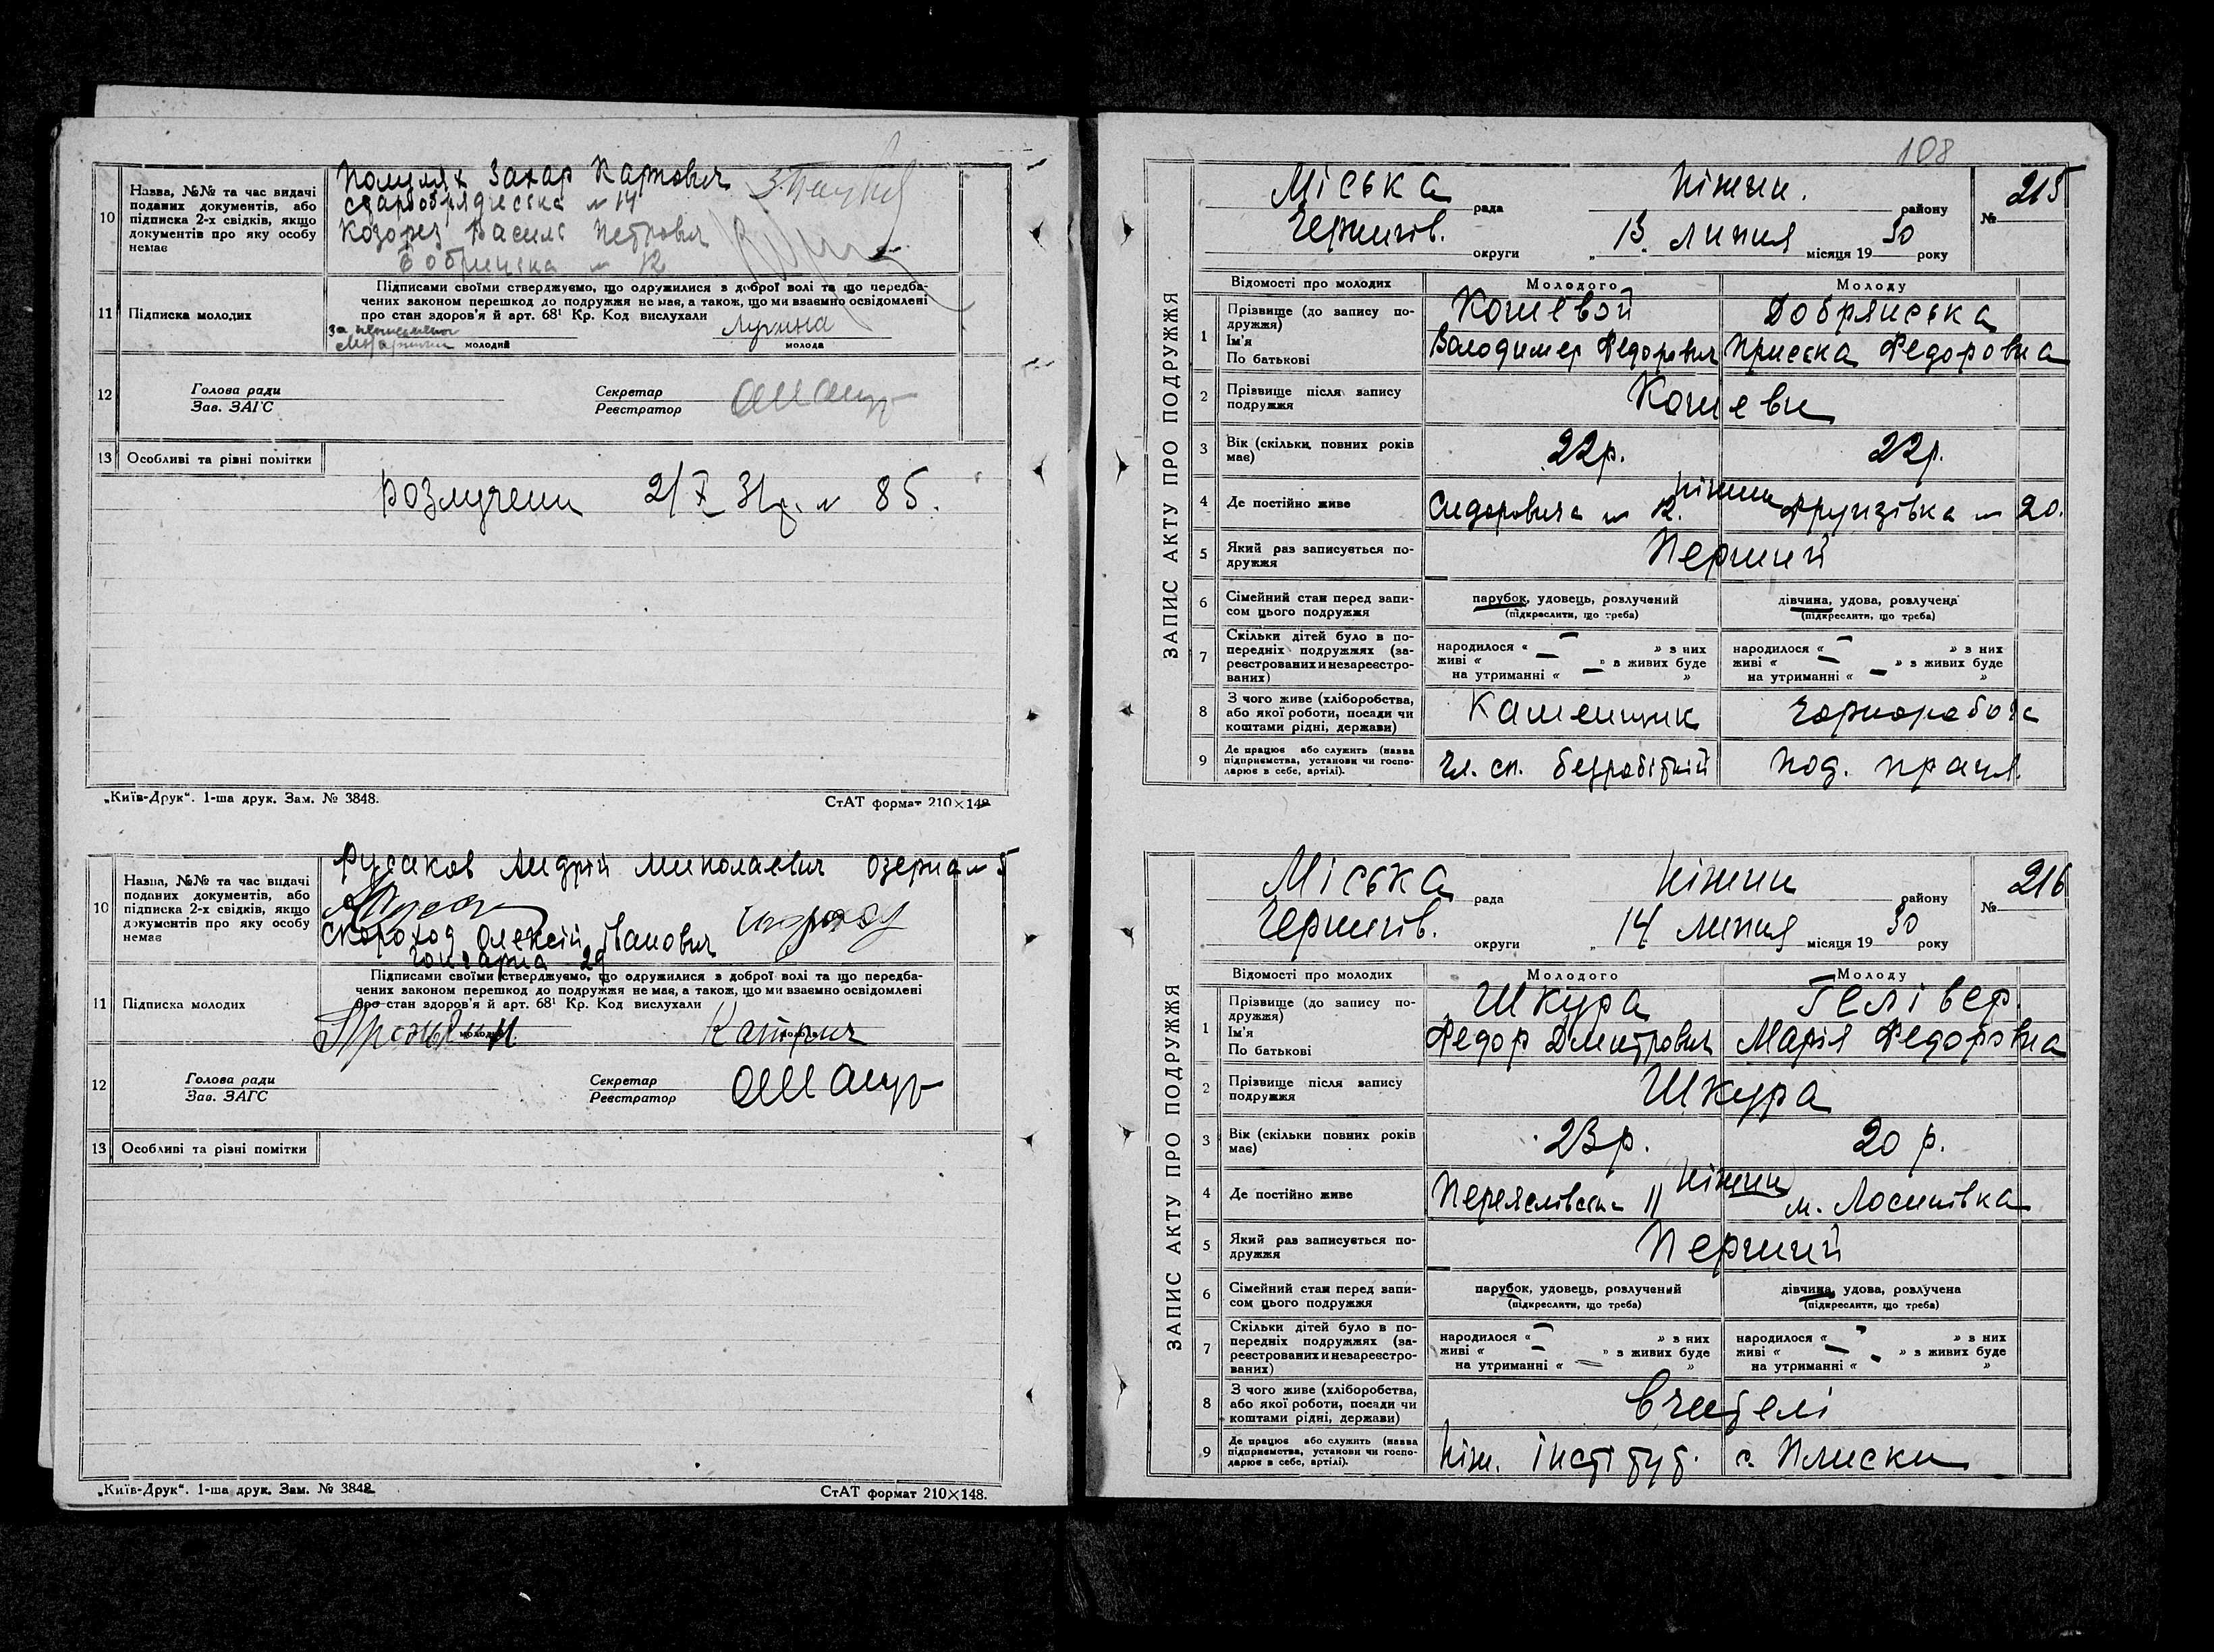 10 Назва, №№ та час видачі поданих документів, або підписка 2-х свідків, якщо документів про яку особу немає
Захар Карпович
№ 14
Козорез Василь Петрович
№ 12
Підписами своїми стверджуємо, що одружилися з доброї волі та що передба-
чених законом перешкод до подружжя не має, а також, що ми взаємно освідомлені
про стан здоров'я й арт. 68¹ Кр. Код вислухали
11 Підписка молодих
молодий
молода
12 Голова ради
Зав. ЗАГС
Секретар
Реєстратор
13 Особливі та різні помітки
Розлучени 2/X 31р. № 85.
„Київ-Друк“. 1-ша друк. Зам. № 3848.
СтАТ формат 210×148
10 Назва, №№ та час видачі поданих документів, або підписка 2-х свідків, якщо документів про яку особу немає
Русаков Андрій Миколаевич Озерна № 5
Скороход Олексій Іванович
Гончарна 29
Підписами своїми стверджуємо, що одружилися з доброї волі та що передба-
чених законом перешкод до подружжя не має, а також, що ми взаємно освідомлені
про стан здоров'я й арт. 68¹ Кр. Код вислухали
11 Підписка молодих
молодий
молода
12 Голова ради
Зав. ЗАГС
Секретар
Реєстратор
13 Особливі та різні помітки
„Київ-Друк“. 1-ша друк. Зам. № 3848
СтАТ формат 210×148.
108
ЗАПИС АКТУ ПРО ПОДРУЖЖЯ
Міська рада Ніжин. району № 215
Чернигів. округи „ 13 липня місяця 1930 року
Відомості про молодих Молодого Молоду
1 Прізвище (до запису подружжя) Кошевой Добрянська
Ім'я
По батькові Володимер Федорович Присска Федоровна
2 Прізвище після запису подружжя Кошеви
3 Вік (скільки повних років має) 22р. 22р.
4 Де постійно живе Сидоровича № 12. Ніжин Фрунзівка № 20.
5 Який раз записується подружжя Перший
6 Сімейний стан перед записом цього подружжя парубок, удовець, розлучений дівчина, удова, розлучена
(підкреслити, що треба) (підкреслити, що треба)
7 Скільки дітей було в попередніх подружжях (зареєстрованих и незареєстрованих)
народилося « — » з них народилося « — » з них
живі « — » з живих буде живі « — » з живих буде
на утриманні « — » на утриманні « — »
8 З чого живе (хліборобства, або якої роботи, посади чи коштами рідні, держави) Каменщик Чорноробоча
9 Де працює або служить (назва підприємства, установи чи господарює в себе, артілі). Чл. сп. безробітній Под. праця.
ЗАПИС АКТУ ПРО ПОДРУЖЖЯ
Міська рада Ніжин району № 216
Чернигів. округи „ 14 липня місяця 1930 року
Відомості про молодих Молодого Молоду
1 Прізвище (до запису подружжя) Шкура Гелівер.
Ім'я
По батькові Федор Дмитрович Марія Федоровна
2 Прізвище після запису подружжя Шкура
3 Вік (скільки повних років має) 23р. 20 р.
4 Де постійно живе Переяслівська 11 Ніжин м. Лосинівка
5 Який раз записується подружжя Перший
6 Сімейний стан перед записом цього подружжя парубок, удовець, розлучений дівчина, удова, розлучена
(підкреслити, що треба) (підкреслити, що треба)
7 Скільки дітей було в попередніх подружжях (зареєстрованих и незареєстрованих)
народилося « — » з них народилося « — » з них
живі « — » з живих буде живі « — » з живих буде
на утриманні « — » на утриманні « — »
8 З чого живе (хліборобства, або якої роботи, посади чи коштами рідні, держави) Вчителі
9 Де працює або служить (назва підприємства, установи чи господарює в себе, артілі). Ніж. інститут. с. Плиски